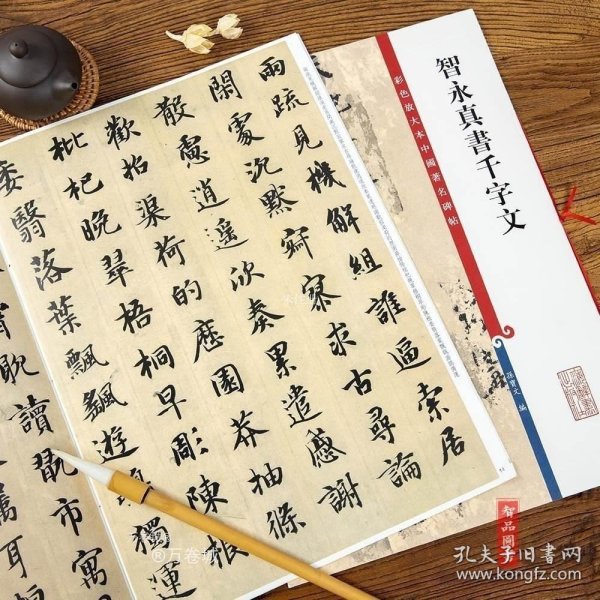 智永真書千字文
彩色放大本中國著名碑帖
孫寶文 編
兩疏見機解組誰逼索居
閑處沉默寂寥求古尋論
散慮逍遙欣奏累遣慼謝
歡招渠荷的歷園莽抽條
枇杷晚翠梧桐早彫陳根
委翳落葉飄飖遊獨運
耽讀翫市寓
屬耳垣
®万卷城
智品圖
孔夫子旧书网
www.kongfz.com